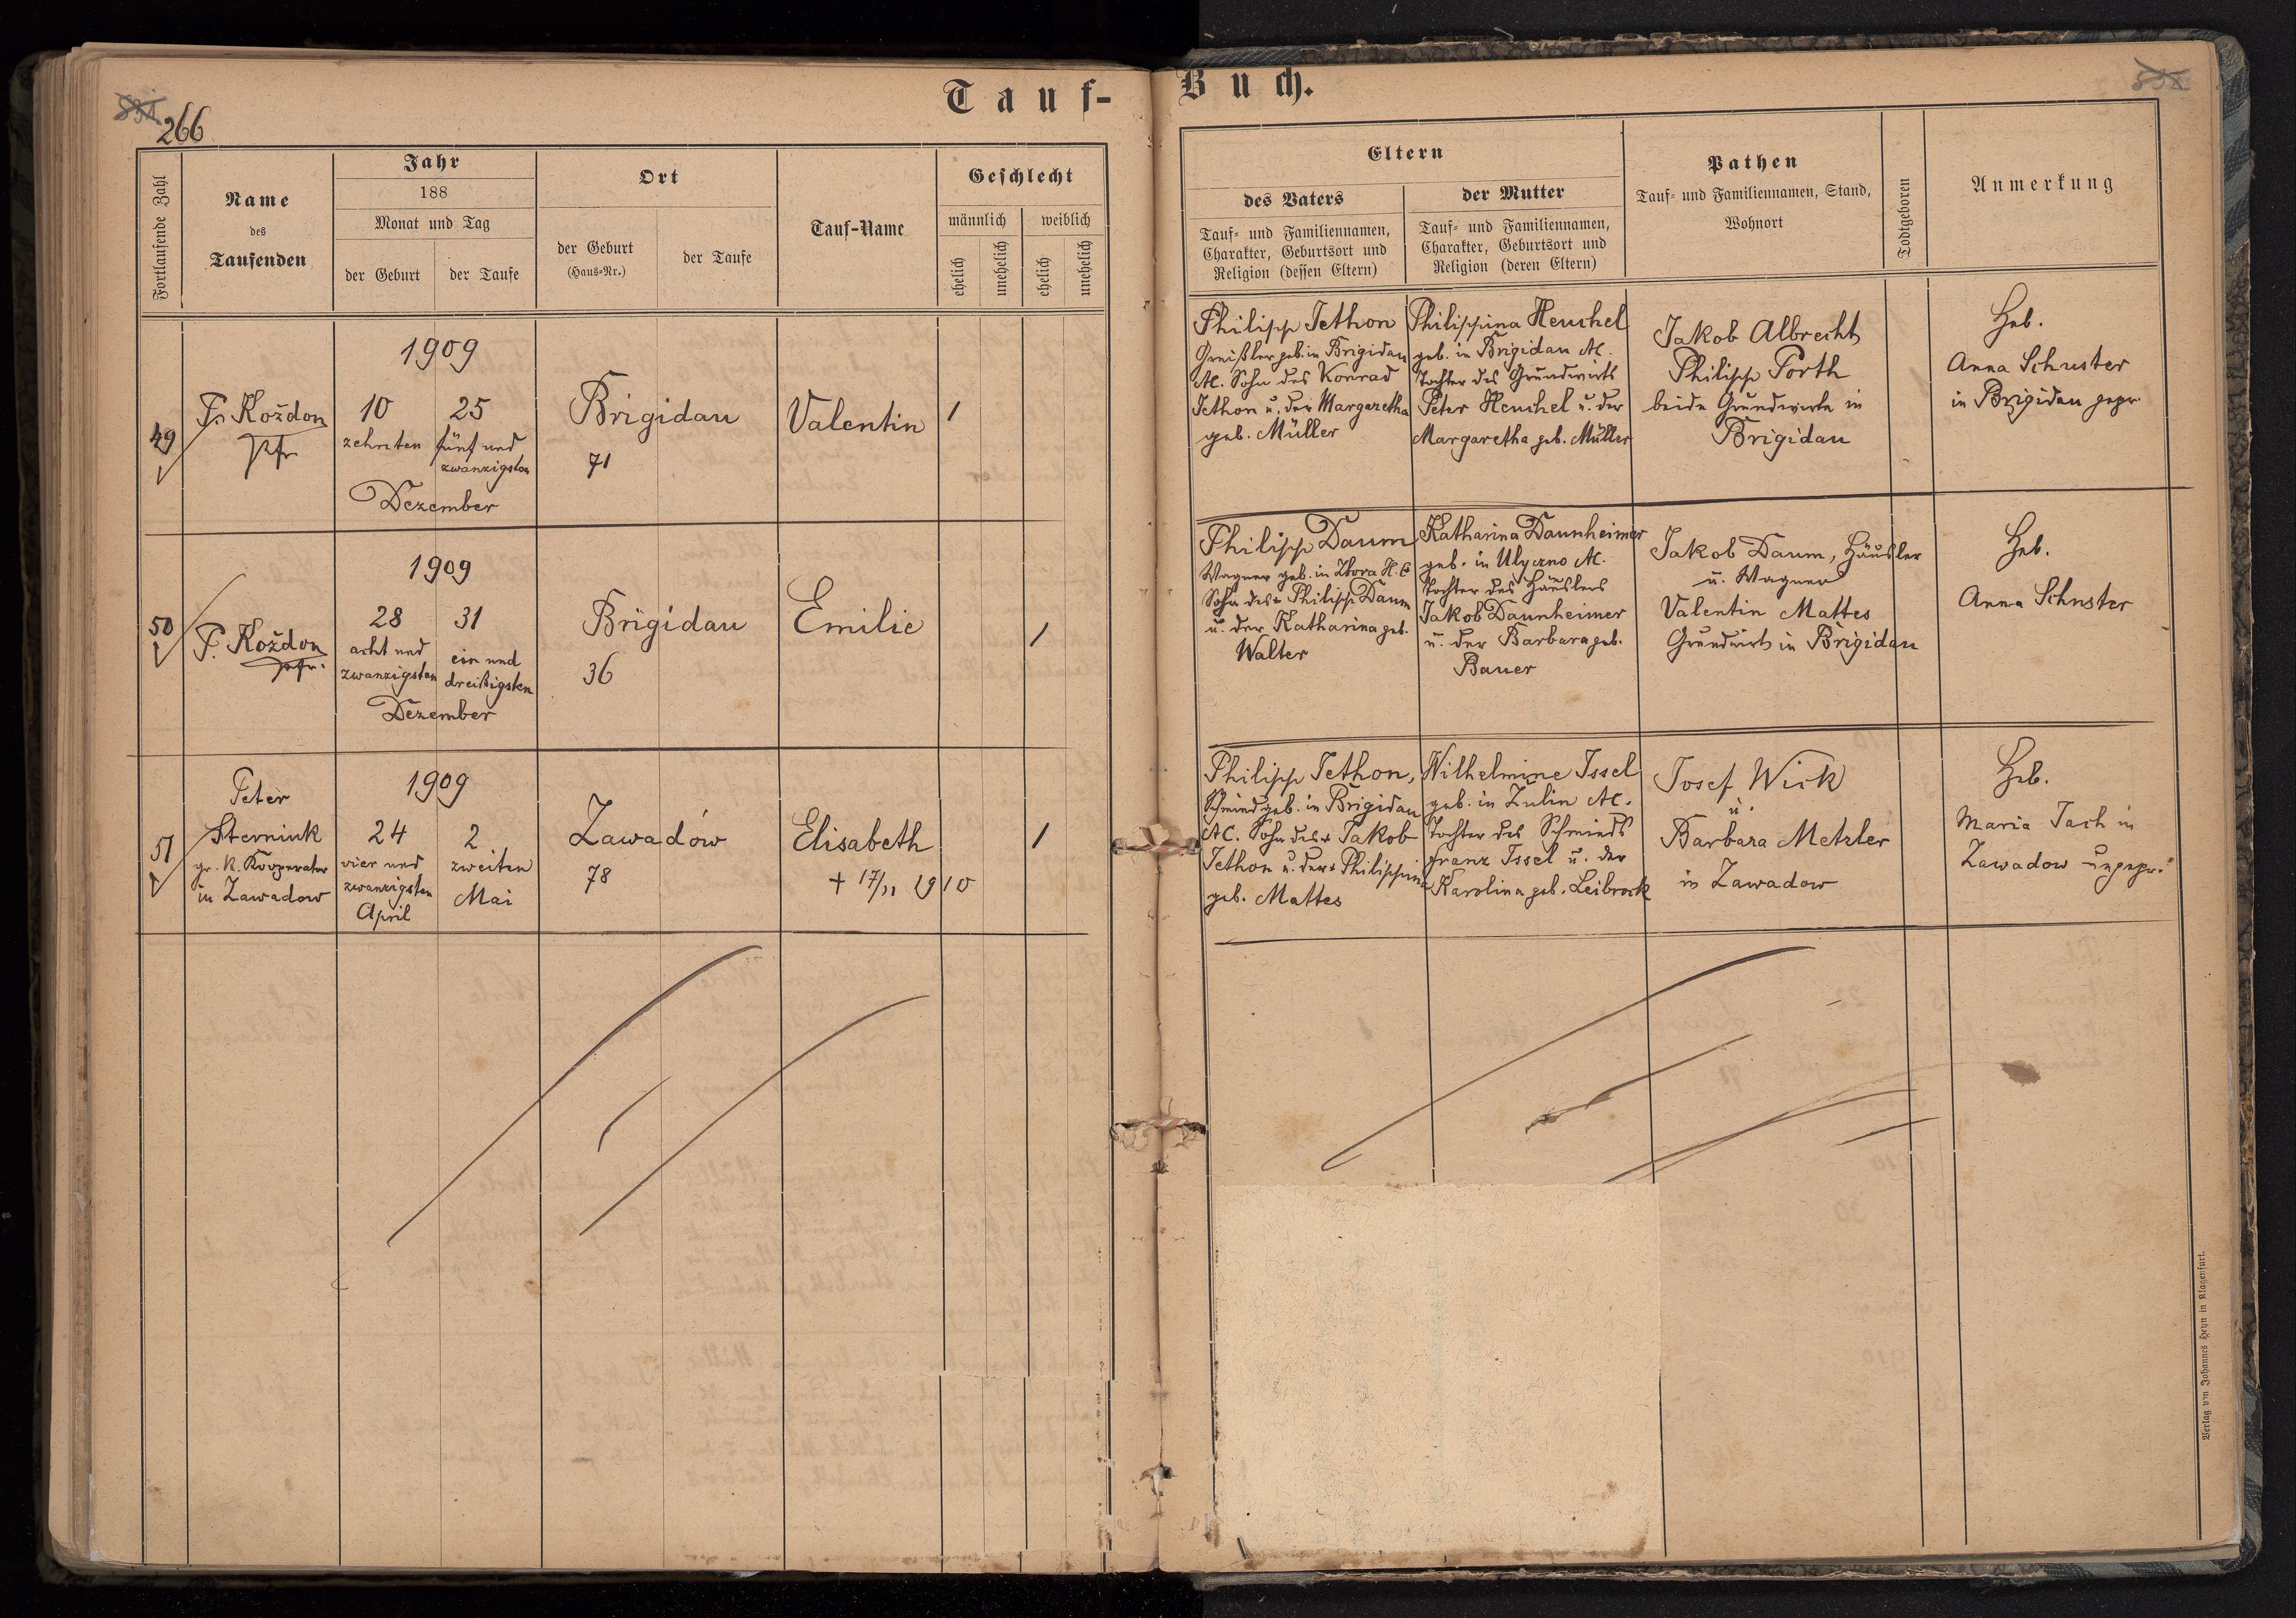 Tauf-
Buch.
266
Fortlaufende Zahl
Name
des
Taufenden
Jahr
188
Monat und Tag
der Geburt
der Taufe
Ort
der Geburt
(Haus-Nr.)
der Taufe
Tauf-Name
Geschlecht
männlich
weiblich
ehelich
unehelich
ehelich
unehelich
Eltern
des Vaters
Tauf- und Familiennamen,
Charakter, Geburtsort und
Religion (dessen Eltern)
der Mutter
Tauf- und Familiennamen,
Charakter, Geburtsort und
Religion (deren Eltern)
Pathen
Tauf- und Familiennamen, Stand,
Wohnort
Todtgeboren
Anmerkung
49
Koždon
Pfr
1909
10
zehnten
25
fünf und
zwanzigsten
Dezember
Brigidau
71
Valentin
1
Philipp Jethon
Greißler geb. in Brigidau
AC. Sohn des Konrad
Jethon u. der Margaretha
geb. Müller
Philippina Heuchel
geb. in Brigidau AC.
Tochter des Grundwirts
Peter Heuchel u. der
Margaretha geb. Müller
Jakob Albrecht
Philipp Porth
beide Grundwirte in
Brigidau
Heb.
Anna Schuster
in Brigidau gepr.
50
F. Koždon
Pfr.
1909
28
acht und
zwanzigsten
31
ein und
dreißigsten
Dezember
Brigidau
36
Emilie
1
Philipp Daum
Wagner geb. in Zbora
Sohn des + Philipp Daum
u. der Katharina geb.
Walter
Katharina Daunheimer
geb. in Ulyczno AC.
Tochter des Häuslers
Jakob Daunheimer
u. der Barbara geb.
Bauer
Jakob Daum, Häusler
u. Wagner
Valentin Mattes
Grundwirt in Brigidau
Heb.
Anna Schuster
51
Peter
Sterniuk
gr. k. Kooperator
in Zawadow
1909
24
vier und
zwanzigsten
April
2
zweiten
Mai
Zawadów
78
Elisabeth
+ 17/11 1910
1
Philipp Jethon,
Schmied geb. in Brigidau
AC. Sohn des + Jakob
Jethon u. der + Philippina
geb. Mattes
Wilhelmine Issel
geb. in Zulin AC.
Tochter des Schmieds
Franz Issel u. der
Karolina geb. Leibrock
Josef Wick
u.
Barbara Metzler
in Zawadow
Heb.
Maria Tach in
Zawadow ungepr.
Verlag von Johannes Heyn in Klagenfurt.